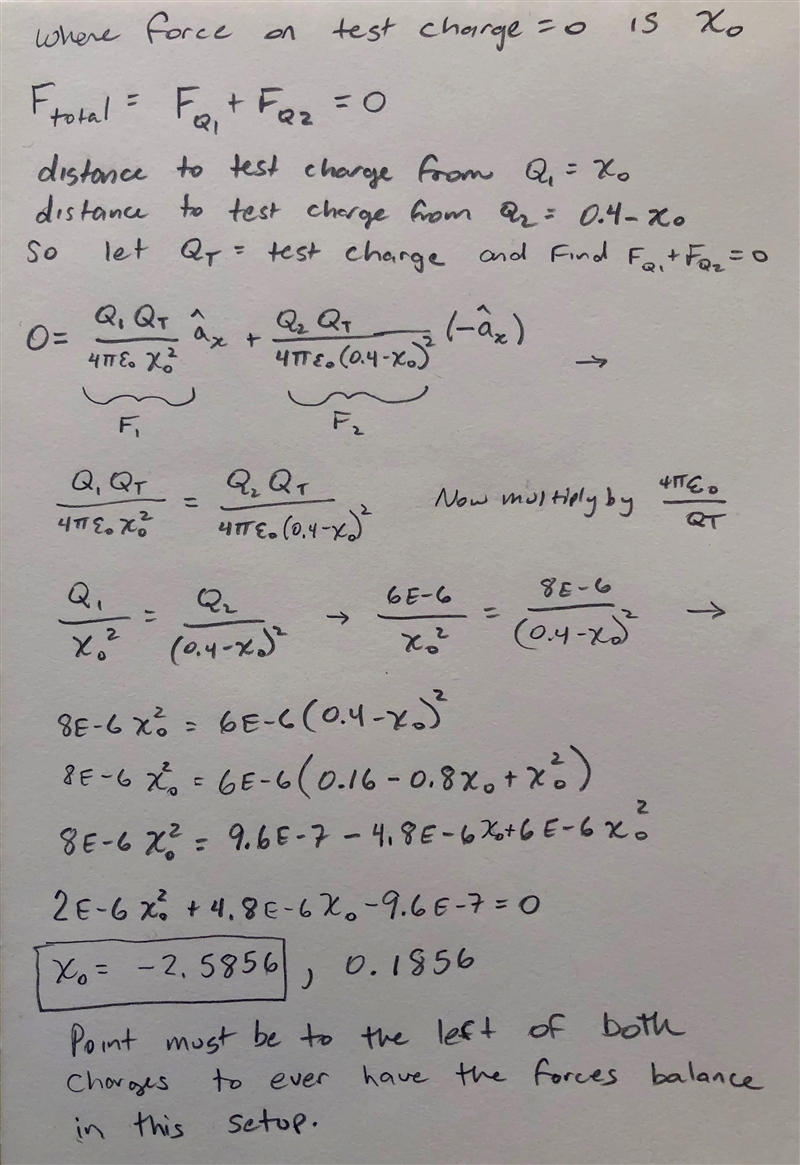 where force on test charge = 0 is x₀
F_total = F_Q₁ + F_Q2 = 0
distance to test charge from Q₁ = x₀
distance to test charge from Q₂ = 0.4 - x₀
So let Q_T = test charge and Find F_Q₁ + F_Q₂ = 0
0 = Q₁ Q_T / 4πε₀ x₀² âₓ + Q₂ Q_T / 4πε₀(0.4-x₀)² (-âₓ) →
F₁ F₂
Q₁ Q_T / 4πε₀ x₀² = Q₂ Q_T / 4πε₀(0.4-x₀)² Now multiply by 4πε₀ / QT
Q₁ / x₀² = Q₂ / (0.4-x₀)² → 6E-6 / x₀² = 8E-6 / (0.4-x₀)² →
8E-6 x₀² = 6E-6(0.4-x₀)²
8E-6 x₀² = 6E-6(0.16 - 0.8x₀ + x₀²)
8E-6 x₀² = 9.6E-7 - 4.8E-6x₀ + 6E-6 x₀²
2E-6 x₀² + 4.8E-6x₀ - 9.6E-7 = 0
x₀ = -2.5856, 0.1856
Point must be to the left of both
charges to ever have the forces balance
in this setup.